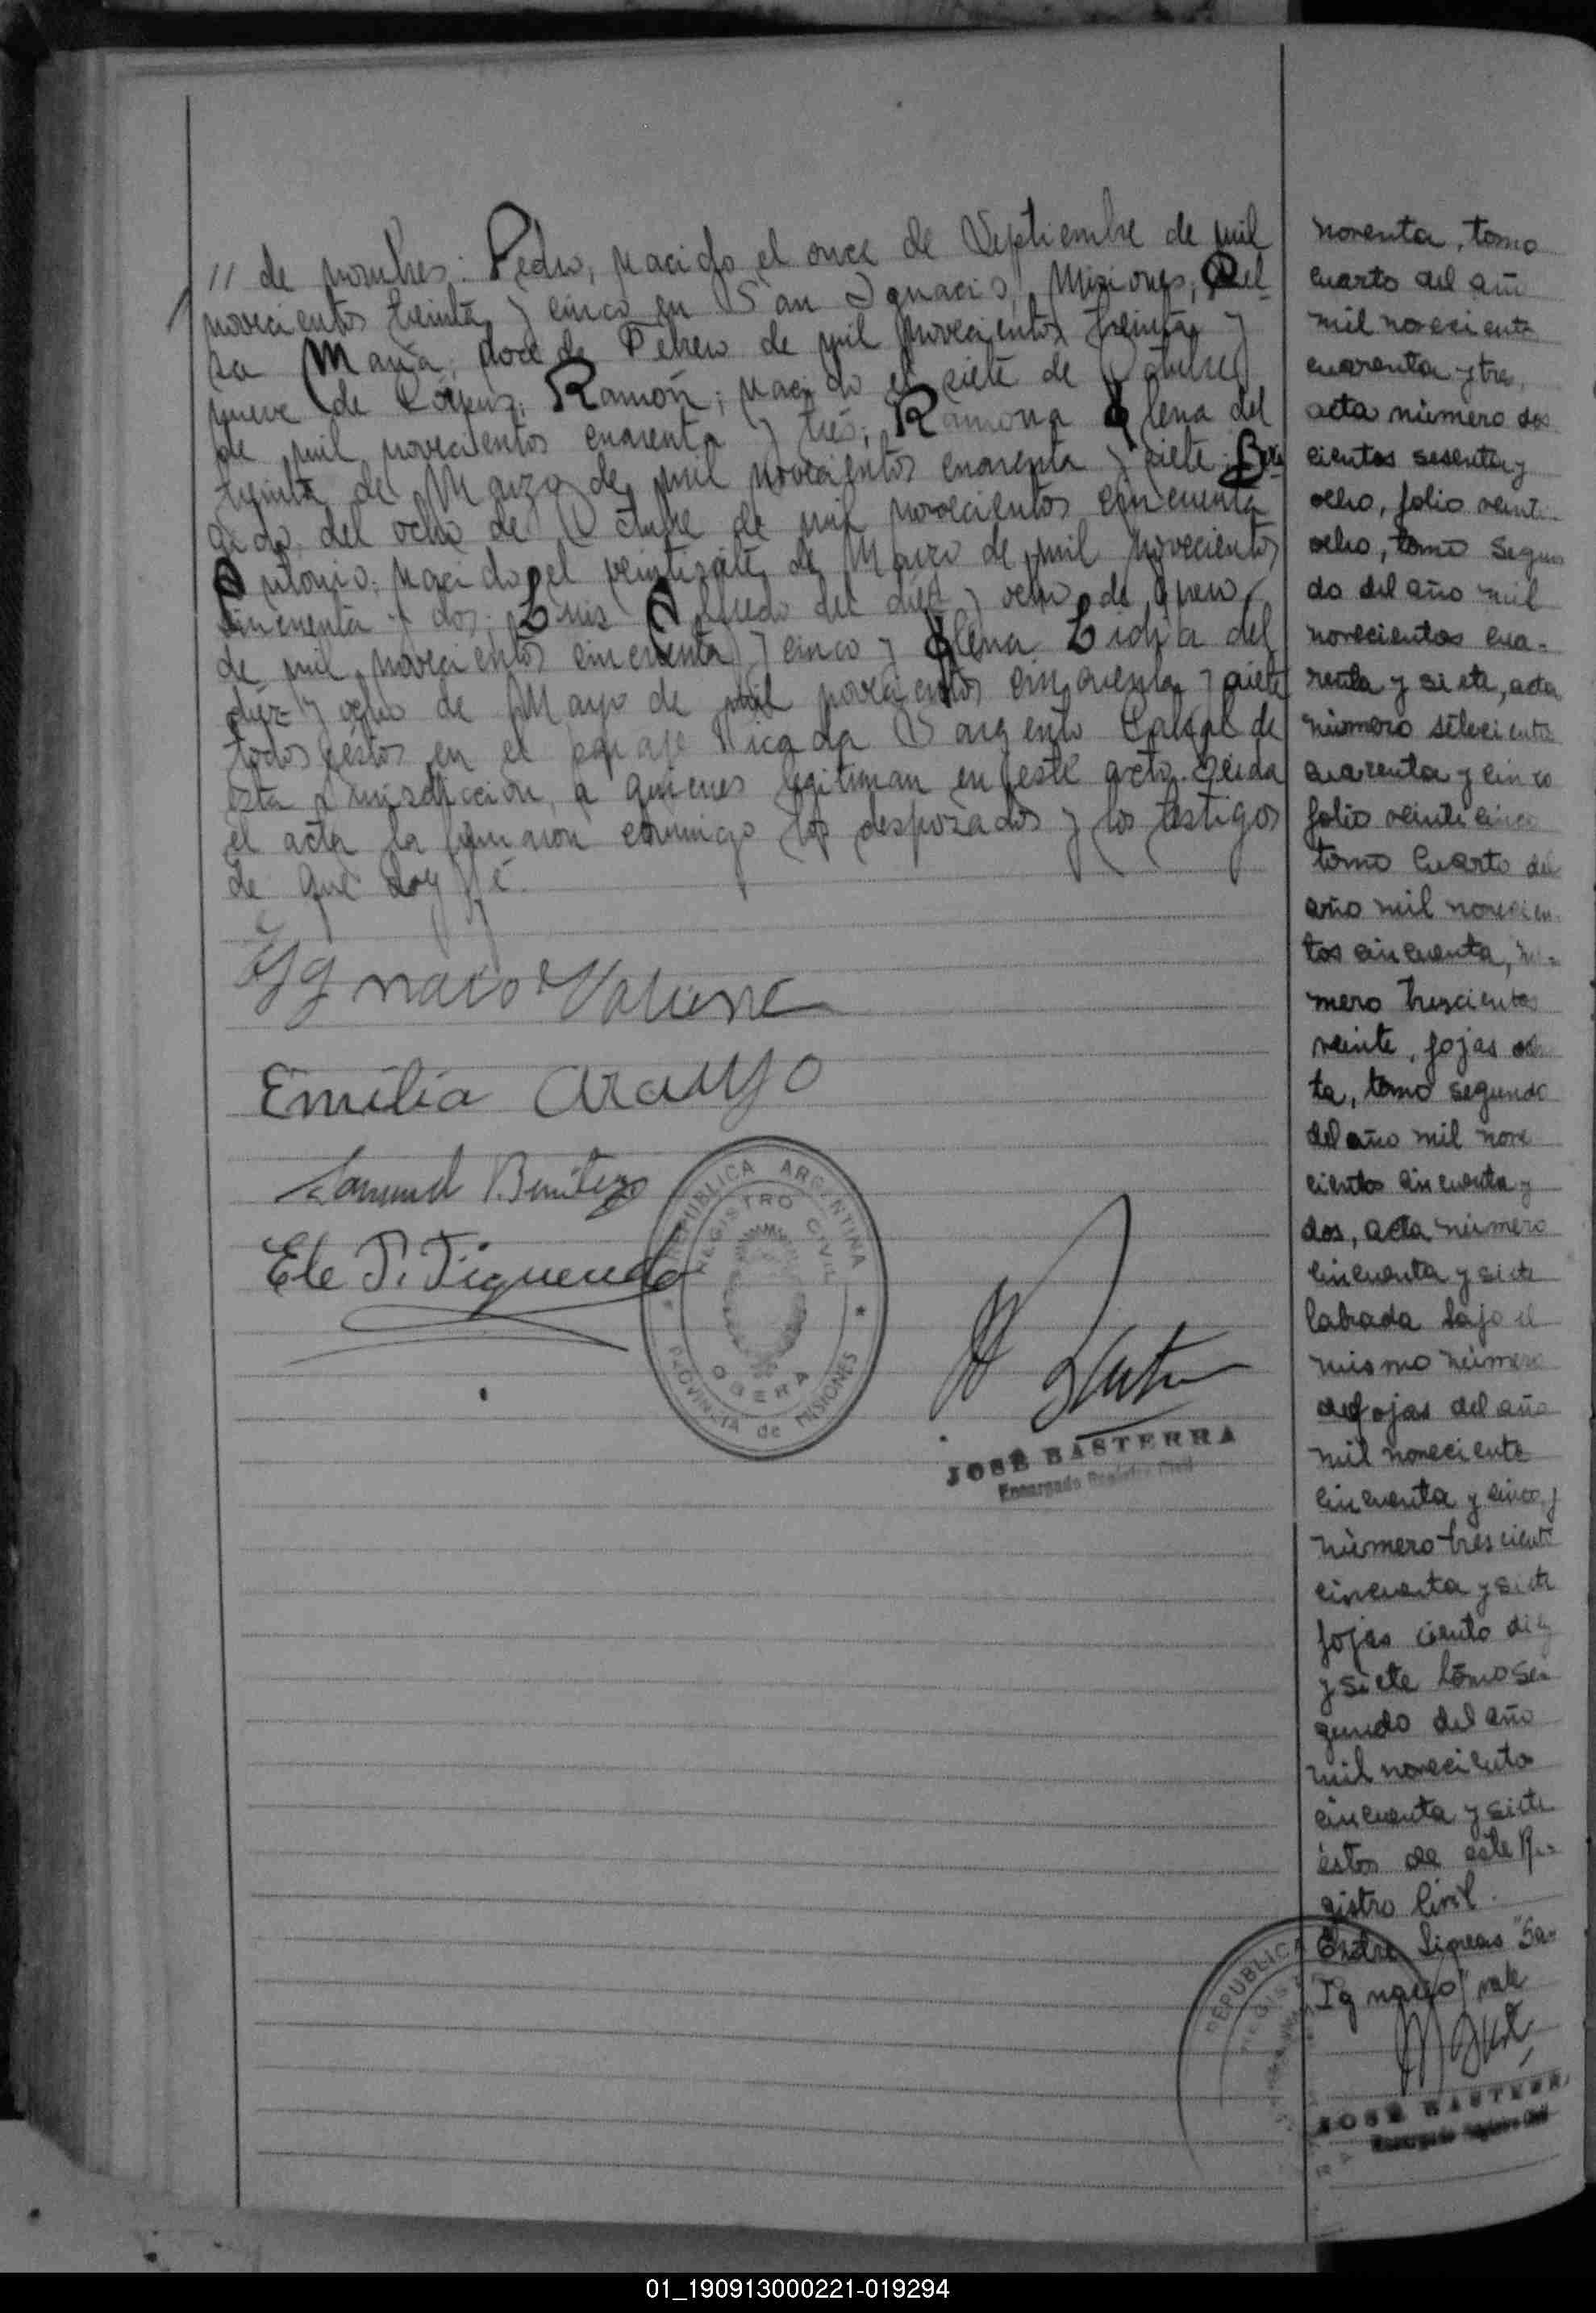 // de nombres: Pedro, nacido el once de Septiembre de mil
novecientos treinta y cinco en San Ignacio, Misiones,
María, doce de Febrero de mil novecientos treinta y
nueve de Corpus; Ramón; nacido el siete de Octubre
de mil novecientos cuarenta y tres; Ramona Elena del
treinta de Marzo de mil novecientos cuarenta y siete;
del ocho de Octubre de mil novecientos cincuenta
Antonio; nacido el veintisiete de Marzo de mil novecientos
cincuenta y dos; Luis Alfredo del diez y ocho de Enero
de mil novecientos cincuenta y cinco y Elena Lidia del
diez y ocho de Mayo de mil novecientos cincuenta y siete
todos éstos en el paraje Picada Sargento Cabral de
esta jurisdicción, a quienes legitiman en este acto. Leida
el acta la firmaron conmigo los desposados y los testigos
de que doy fé.
Emilia Araujo
Samuel Benitez
Ele P. Figueredo
REPUBLICA ARGENTINA
REGISTRO CIVIL
OBERA
PROVINCIA de MISIONES
JOSÉ BASTERRA
Encargado Registro Civil
noventa, tomo
cuarto del año
mil novecientos
cuarenta y tres,
acta número dos
cientos sesenta y
ocho, folio veinti
ocho, tomo Segun
do del año mil
novecientos cua-
renta y siete, acta
número setecientos
cuarenta y cinco
folio veinticinco
tomo Cuarto del
año mil novecien
tos cincuenta, nú-
mero trescientos
veinte, fojas
ta, tomo segundo
del año mil nove
cientos cincuenta y
dos, acta número
cincuenta y siete
labrada bajo el
mismo número
de fojas del año
mil novecientos
cincuenta y cinco, y
número trescientos
cincuenta y siete
fojas ciento diez
y siete tomo se-
gundo del año
mil novecientos
cincuenta y siete
éstos de este Re-
gistro Civil.
Entre lineas "San
Ignacio" vale
REPUBLICA
REGIST
JOSÉ BASTERRA
Encargado Registro Civil
01_190913000221-019294